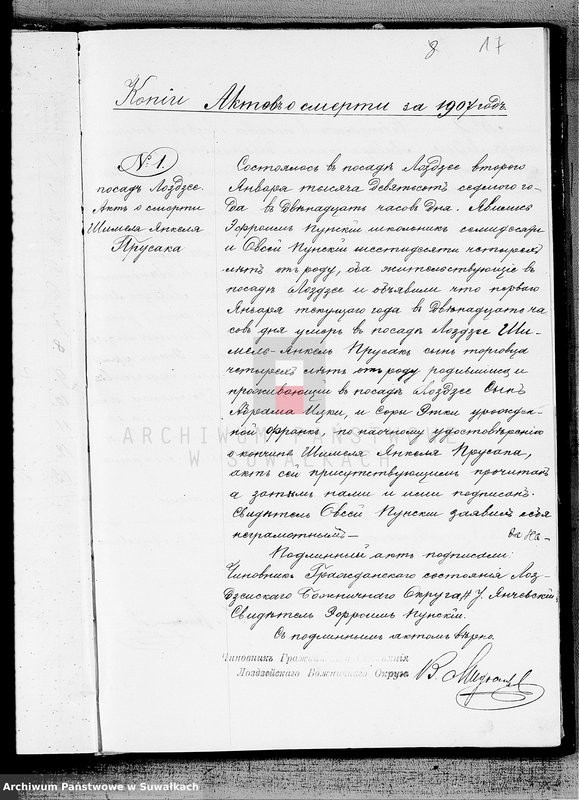 8 17
Копіи Актовъ о смерти за 1907 годъ
№ 1.
посадъ Лоздзее.
Актъ о смерти
Шимеля Янкеля
Прусака
Состоялось въ посадѣ Лоздзее второго
Января тысяча девятьсотъ седьмого го-
да въ двѣнадцать часовъ дня. Явились
Эфроимъ Пунскій школьникъ семидесяти
и Овсей Пунскій шестидесяти четырехъ
лѣтъ отъ роду, оба жительствующіе въ
посадѣ Лоздзее и объявили что перваго
Января текущаго года въ двѣнадцать ча
совъ дня умеръ въ посадѣ Лоздзее Ши-
мель-Янкель Прусакъ сынъ торговца
четырехъ лѣтъ отъ роду родившійся и
проживающій въ посадѣ Лоздзее сынъ
Абрама Ицки, и Соры Этки урожден-
ной Франкъ, по наочному удостовѣренію
о кончинѣ Шимеля Янкеля Прусака,
актъ сей присутствующимъ прочитанъ
а затѣмъ нами и ими подписанъ.
Свидѣтель Овсей Пунскій заявилъ себя
неграмотнымъ —
Подлинный актъ подписали:
Чиновникъ Гражданскаго состоянія Лоз-
дзейскаго Божничнаго Округа Янчевскій
Свидѣтель Эфроимъ Пунскій.
Съ подлиннымъ актомъ вѣрно.
Чиновникъ Гражданскаго Состоянія
Лоздзейскаго Божничнаго Округа
ARCHIWUM PAŃSTWOWE
W SUWAŁKACH
Archiwum Państwowe w Suwałkach